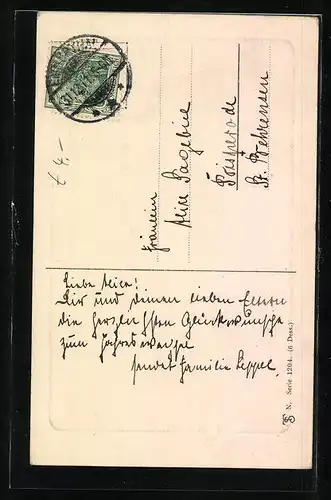 Fräulein
Alice Pagebiel
Voisperode
b. Behrensen
Liebe Alice!
Dir und deinen lieben Eltern
die herzlichsten Glückwunsche
zum Jahreswechsel
sendet Familie Seppel.
€ 4,-
S N. Serie 1204. (6 Dess.)